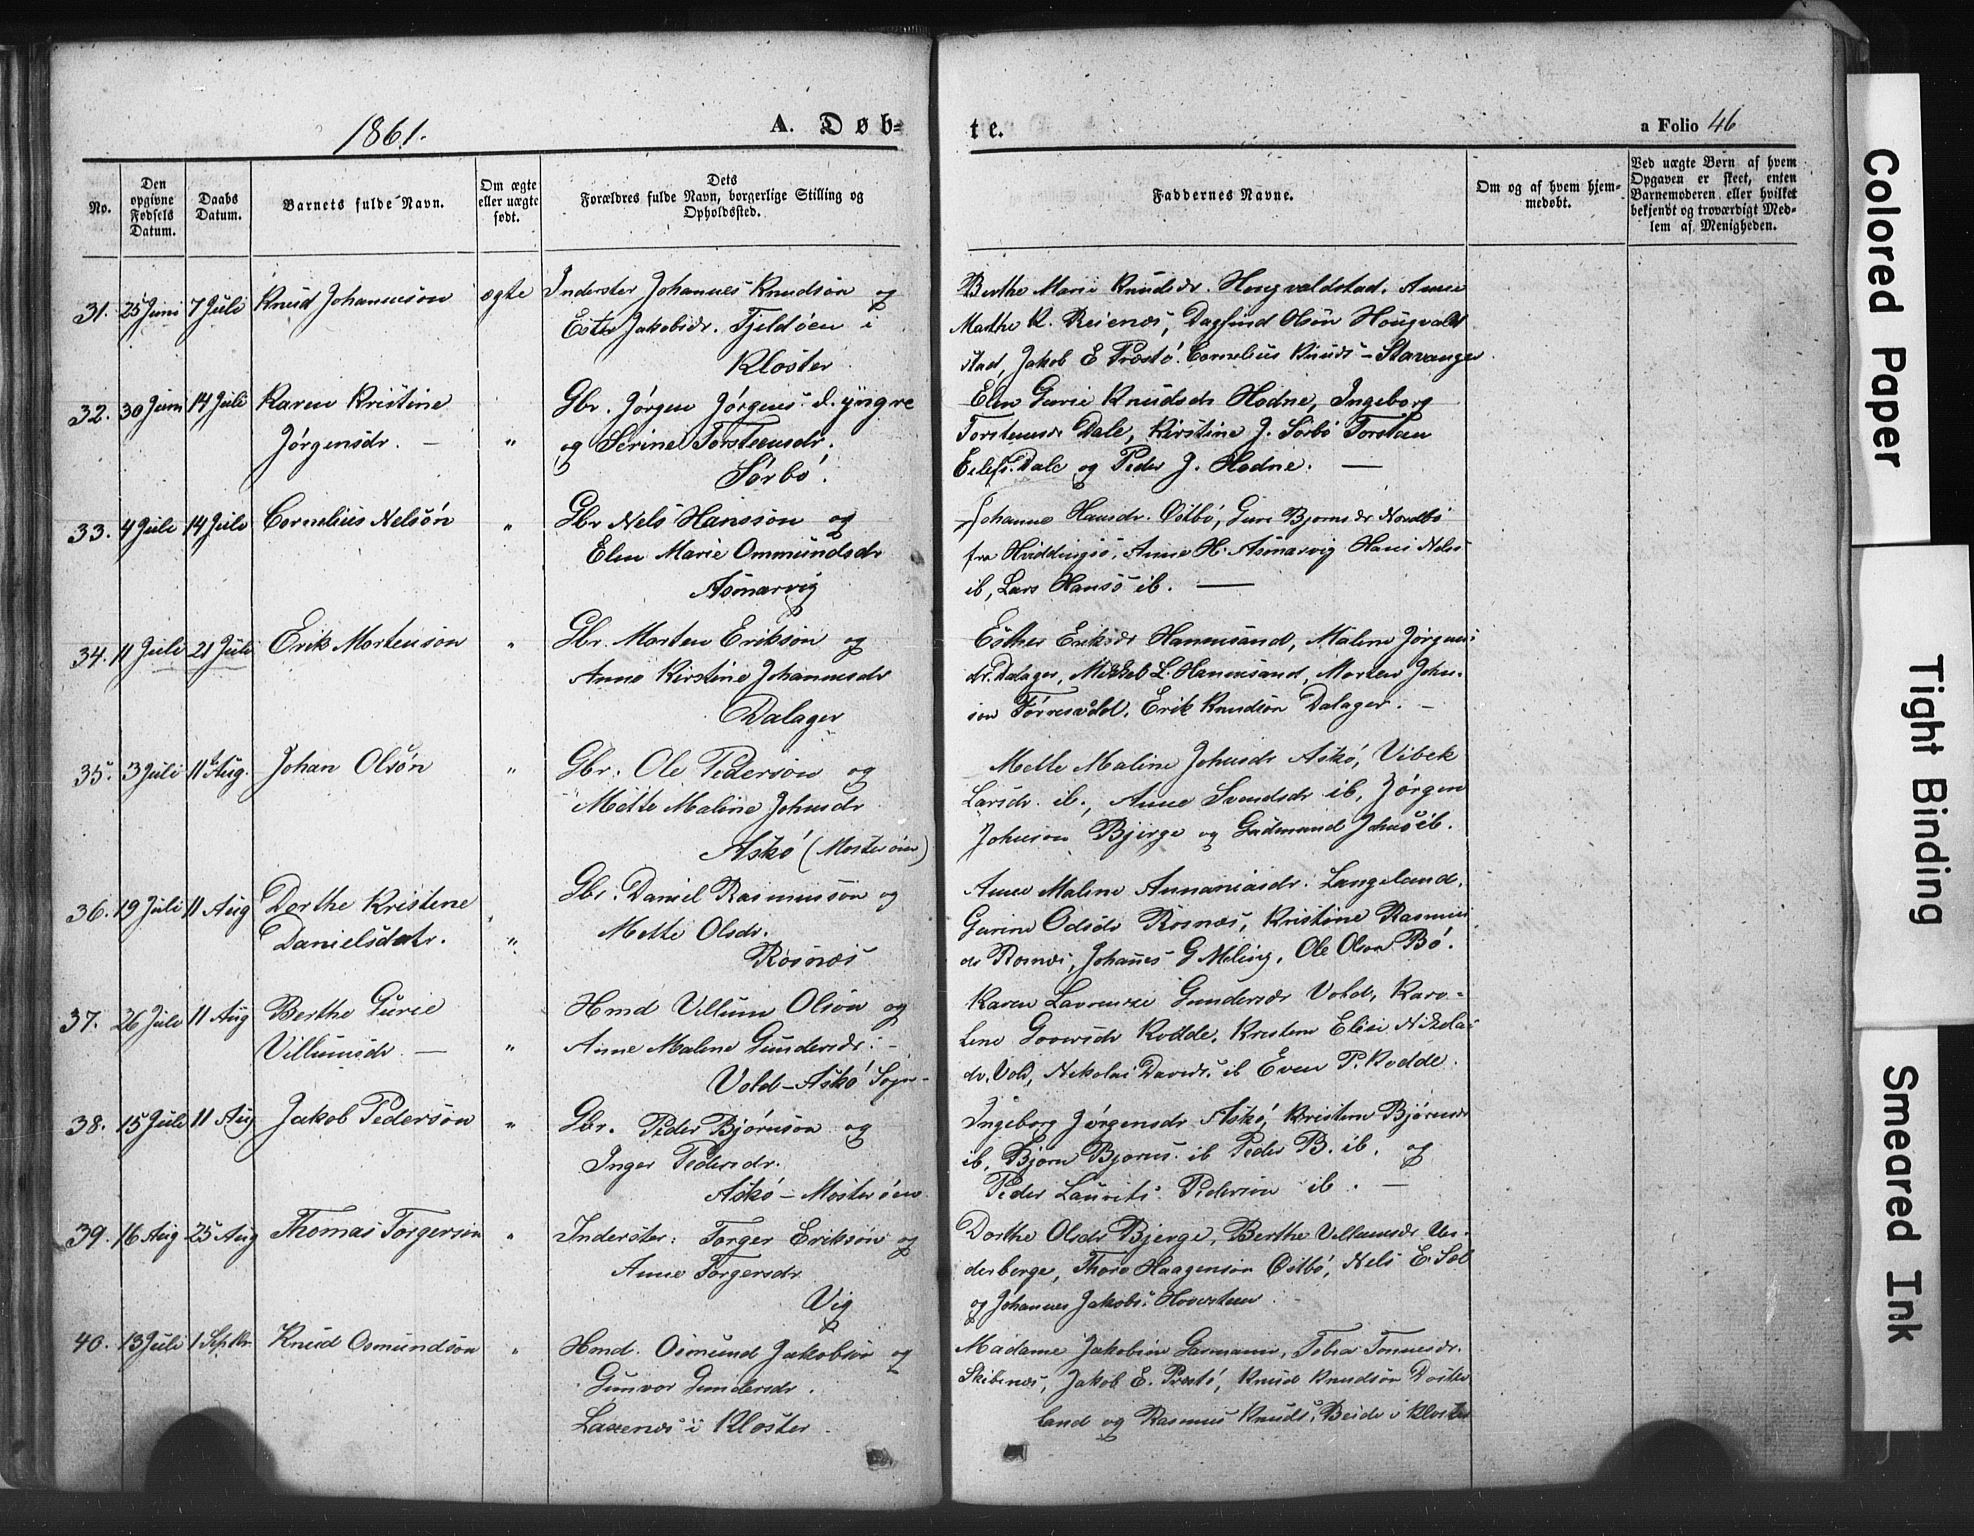 1861.
A. Døb=
te.
a Folio 46
No.
Den opgivne Fødsels Datum.
Daabs Datum.
Barnets fulde Navn.
Om ægte eller uægte født.
Dets Forældres fulde Navn, borgerlige Stilling og Opholdssted.
Faddernes Navne.
Om og af hvem hjemmedøbt.
Ved uægte Børn af hvem
Opgaven er skeet, enten
Barnemoderen eller hvilket
bekjendt og troværdigt Med-
lem af Menigheden.
31. 25 Juni 7 Juli Knud Johannesøn ægte Inderster Johannes Knudsøn og
Ester Jakobsdr. Fjeldøen i
Kloster
Berthe Marie Knudsdr. Hougvaldstad. Anne
Marthe K. Reienæs, Dagfind Olsøn Hougvald
stad, Jakob E Præstø. Cornelius Knuds - Stavanger
32. 30 Juni 14 Juli Karen Kristine
Jørgensdr. — „
Gbr. Jørgen Jørgens. d. yngre
og Serine Torsteensdr.
Sørbø.
Elen Gurie Knudsdr Hodne, Ingeborg
Torsteensdr Dale, Kirstine J. Sørbø Torsten
Eilefs. Dale og Peder J. Hodne. —
33. 4 Juli 14 Juli Cornelius Nelsøn „
Gbr Nels Hansson og
Elen Marie Ommundsdr
Asmarvig
Johanne Hansdr. Østbø, Guri Bjornsdr Nordbø
fra Hviddingsø, Anne H. Asmarvig Hans Nels
ib, Lars Hansø ib. —
34. 11 Juli 21 Juli Erik Mortensøn „
Gbr. Morten Eriksøn og
Anne Kirstine Johannesdr
Dalager
Esther Eriksdr Hanasand, Maline Jørgens
dr. Dalager, Mikkel L. Hanasand, Morten John-
son Tørresvold. Erik Knudsøn Dalager. —
35. 3 Juli 11 Aug. Johan Olsøn „
Gbr. Ole Pedersøn og
Mette Maline Johnsdr
Askø (Mosterøen)
Mette Maline Johnsdr Askø, Vibek
Larsdr. ib., Anne Svendsdr ib, Jørgen
Johnson Bjerge og Gudmund Johns ib.
36. 19 Juli 11 Aug Dorthe Kristine
Danielsdatr. „
Gbr. Daniel Rasmussøn og
Mette Olsdr.
Rosnæs
Anne Maline Annaniasdr. Langeland.
Garine Odsdr Rosnæs, Kristine Rasmus
dr Rosnæs, Johanes G Meling, Ole Olson Bø.
37. 26 Juli 11 Aug Berthe Gurie
Villumsdr. — „
Hmd Villum Olsøn og
Anne Maline Gundersdr. -
Vold - Askø Sogn -
Karen Lavrenze Gundersdr Vold, Karo-
line Goversdr Kodde, Kristen Elise Nikolai
dr. Vold, Nikolai Davids. ib Even P. Kodde.
38. 15 Juli 11 Aug Jakob Pedersøn „
Gbr. Peder Bjørnson og
Inger Pedersdr.
Askø - Mosterøen
Ingeborg Jørgensdr Askø, Kristine Bjørnsdr
ib, Bjørn Bjorns. ib Peder B. ib. og
Peder Laurits Pederson ib. —
39. 16 Aug 25 Aug Thomas Torgersøn „
Inderster: Torger Eriksøn og
Anne Torgersdr
Vig
Dorthe Olsdr Bjerge, Berthe Villumsdr Un-
derberge, Thore Haagensøn Østbø, Nels E. Søl
og Johannes Jakobs. Hoversteen
40. 13 Juli 1 Septbr. Knud Osmundsøn „
Hmd. Osmund Jakobsøn og
Gunvor Gundersdr.
Laxenæs i Kloster.
Madame Jakobine Garmann, Tobia Tønnesdr.
Skibenæs, Jakob E. Præstø, Knud Knudsøn Døstler
land og Rasmus Knuds. Beide i Kloster
Colored Paper
Tight Binding
Smeared Ink